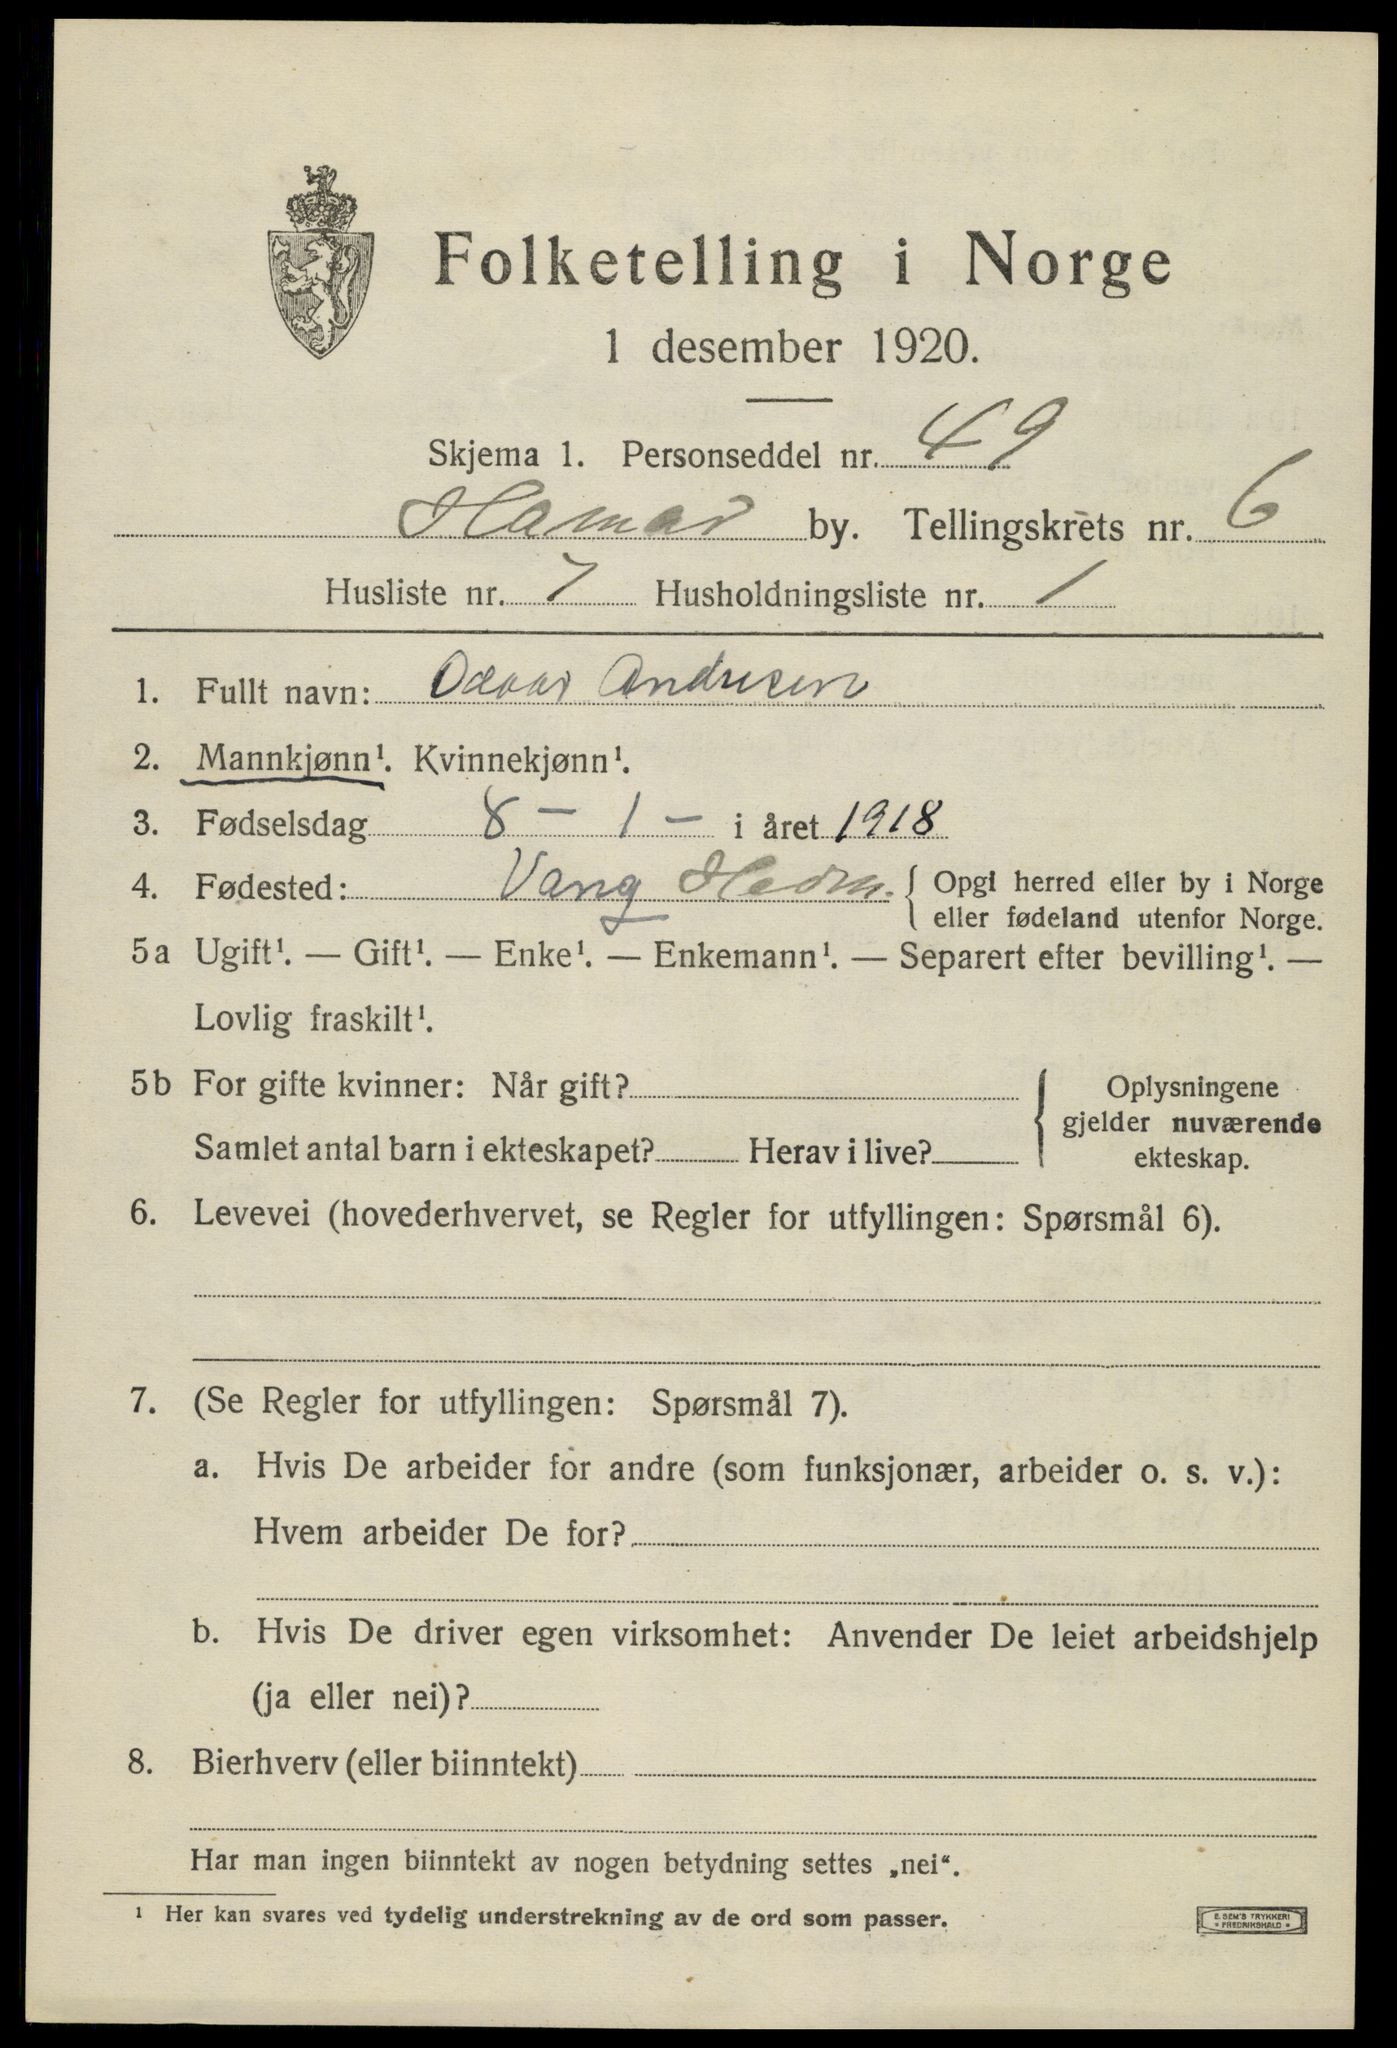 Folketelling i Norge
1 desember 1920.
Skjema 1. Personseddel nr. 49
Hamar by. Tellingskrets nr. 6
Husliste nr. 7 Husholdningsliste nr. 1
1. Fullt navn: Andresen
2. Mannkjønn¹. Kvinnekjønn¹.
3. Fødselsdag 8 – 1 – i året 1918
4. Fødested: Vang Hedm. { Opgi herred eller by i Norge
eller fødeland utenfor Norge.
5a Ugift¹. — Gift¹. — Enke¹. — Enkemann¹. — Separert efter bevilling¹. —
Lovlig fraskilt¹.
5b For gifte kvinner: Når gift? { Oplysningene
gjelder nuværende
Samlet antal barn i ekteskapet? Herav i live? ekteskap.
6. Levevei (hovederhvervet, se Regler for utfyllingen: Spørsmål 6).
7. (Se Regler for utfyllingen: Spørsmål 7).
a. Hvis De arbeider for andre (som funksjonær, arbeider o. s. v.):
Hvem arbeider De for?
b. Hvis De driver egen virksomhet: Anvender De leiet arbeidshjelp
(ja eller nei)?
8. Bierhverv (eller biinntekt)
Har man ingen biinntekt av nogen betydning settes „nei“.
¹ Her kan svares ved tydelig understrekning av de ord som passer.
E. SEM'S TRYKKERI
• FREDRIKSHALD •